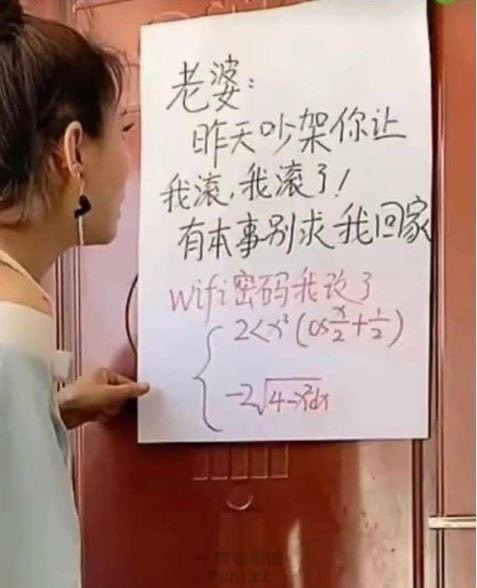 老婆:
昨天吵架你让
我滚,我滚了!
有本事别求我回家
wifi密码我改了
2<x³(cos x/2+1/2)
-2√4-x²dx